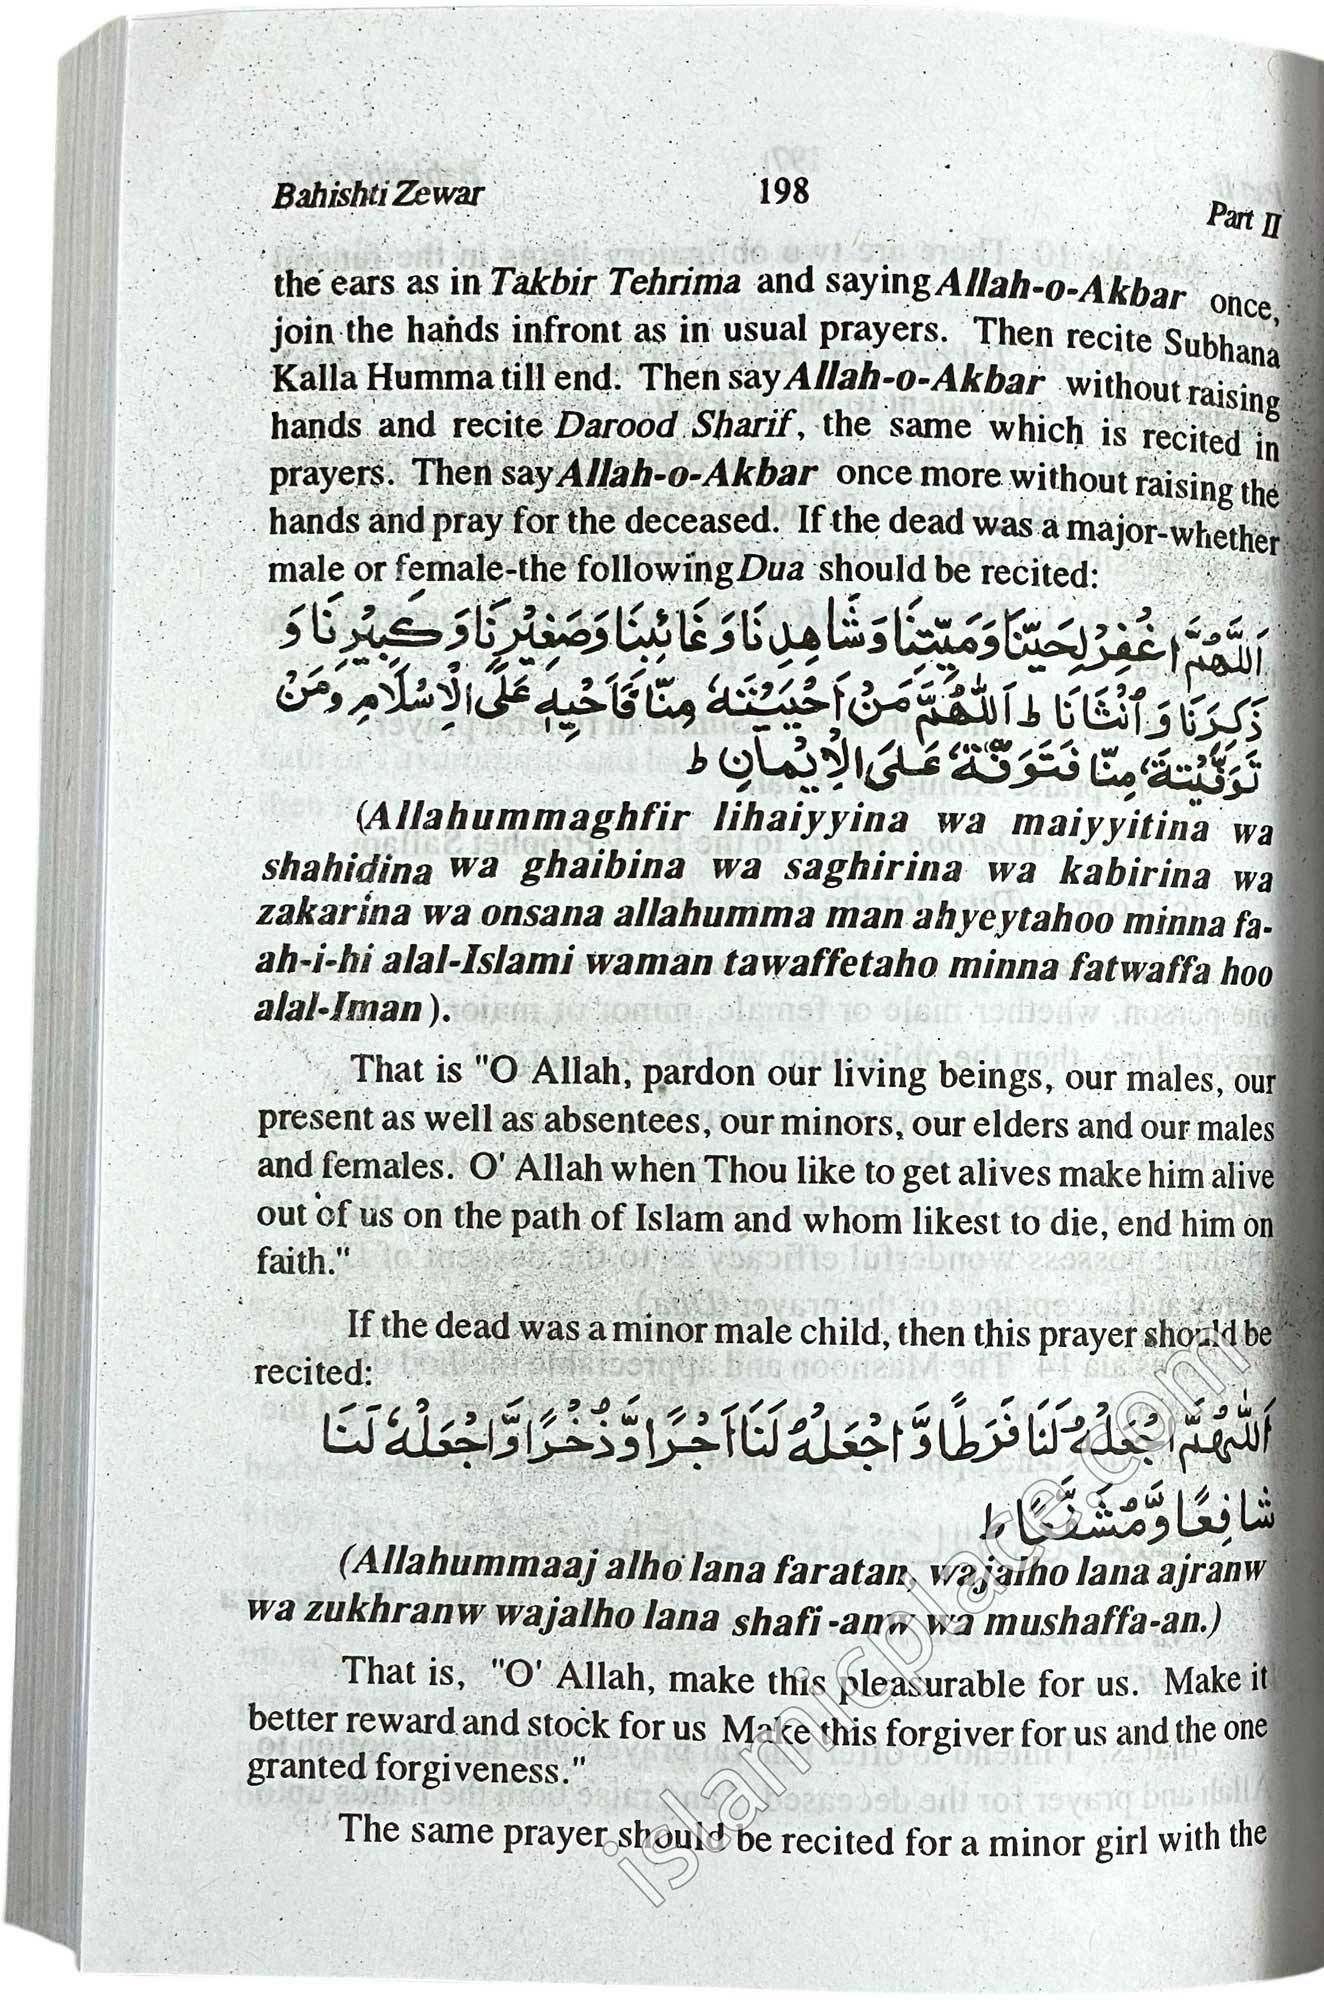 Bahishti Zewar 198 Part II
the ears as in Takbir Tehrima and saying Allah-o-Akbar once,
join the hands infront as in usual prayers. Then recite Subhana
Kalla Humma till end. Then say Allah-o-Akbar without raising
hands and recite Darood Sharif, the same which is recited in
prayers. Then say Allah-o-Akbar once more without raising the
hands and pray for the deceased. If the dead was a major-whether
male or female-the following Dua should be recited:
اَللّٰهُمَّ اغْفِرْ لِحَيِّنَا وَمَيِّتِنَا وَشَاهِدِنَا وَغَائِبِنَا وَصَغِيْرِنَا وَكَبِيْرِنَا وَ
ذَكَرِنَا وَاُنْثَانَا ط اَللّٰهُمَّ مَنْ اَحْيَيْتَهٗ مِنَّا فَاَحْيِهٖ عَلَى الْاِسْلَامِ وَمَنْ
تَوَفَّيْتَهٗ مِنَّا فَتَوَفَّهٗ عَلَى الْاِيْمَانِ ط
(Allahummaghfir lihaiyyina wa maiyyitina wa
shahidina wa ghaibina wa saghirina wa kabirina wa
zakarina wa onsana allahumma man ahyeytahoo minna fa-
ah-i-hi alal-Islami waman tawaffetaho minna fatwaffa hoo
alal-Iman).
That is "O Allah, pardon our living beings, our males, our
present as well as absentees, our minors, our elders and our males
and females. O' Allah when Thou like to get alives make him alive
out of us on the path of Islam and whom likest to die, end him on
faith."
If the dead was a minor male child, then this prayer should be
recited:
اَللّٰهُمَّ اجْعَلْهُ لَنَا فَرَطًا وَّ اجْعَلْهُ لَنَا اَجْرًا وَّذُخْرًا وَّاجْعَلْهُ لَنَا
شَافِعًا وَّمُشَفَّعًا ط
(Allahummaaj alho lana faratan, wajalho lana ajranw
wa zukhranw wajalho lana shafi -anw wa mushaffa-an.)
That is, "O' Allah, make this pleasurable for us. Make it
better reward and stock for us Make this forgiver for us and the one
granted forgiveness."
The same prayer should be recited for a minor girl with the
islamicplace.com